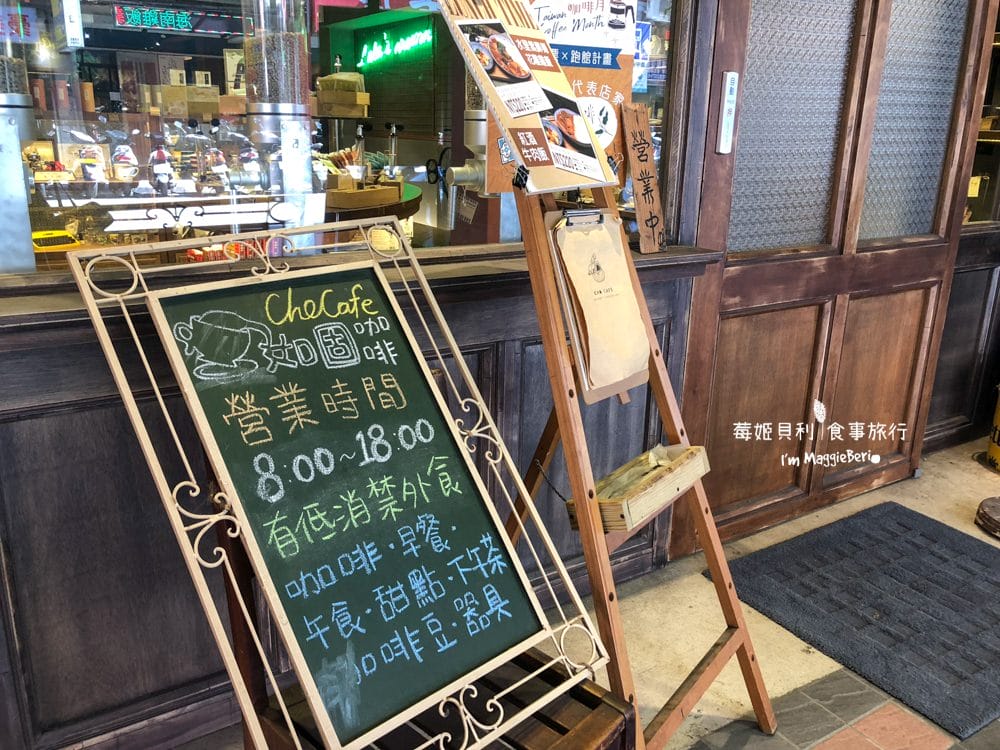 CheCafe
如固咖啡
營業時間
8:00~18:00
有低消禁外食
咖啡·早餐·
午食·甜點·下午茶
咖啡豆·器具
營業中
紅酒
牛肉飯
NT$220
Taiwan
Coffee Month
咖啡月
跑館計畫
代表店家
CHE CAFE
海南雞飯
自動
莓姬貝利 食事旅行
I'm MaggieBeri